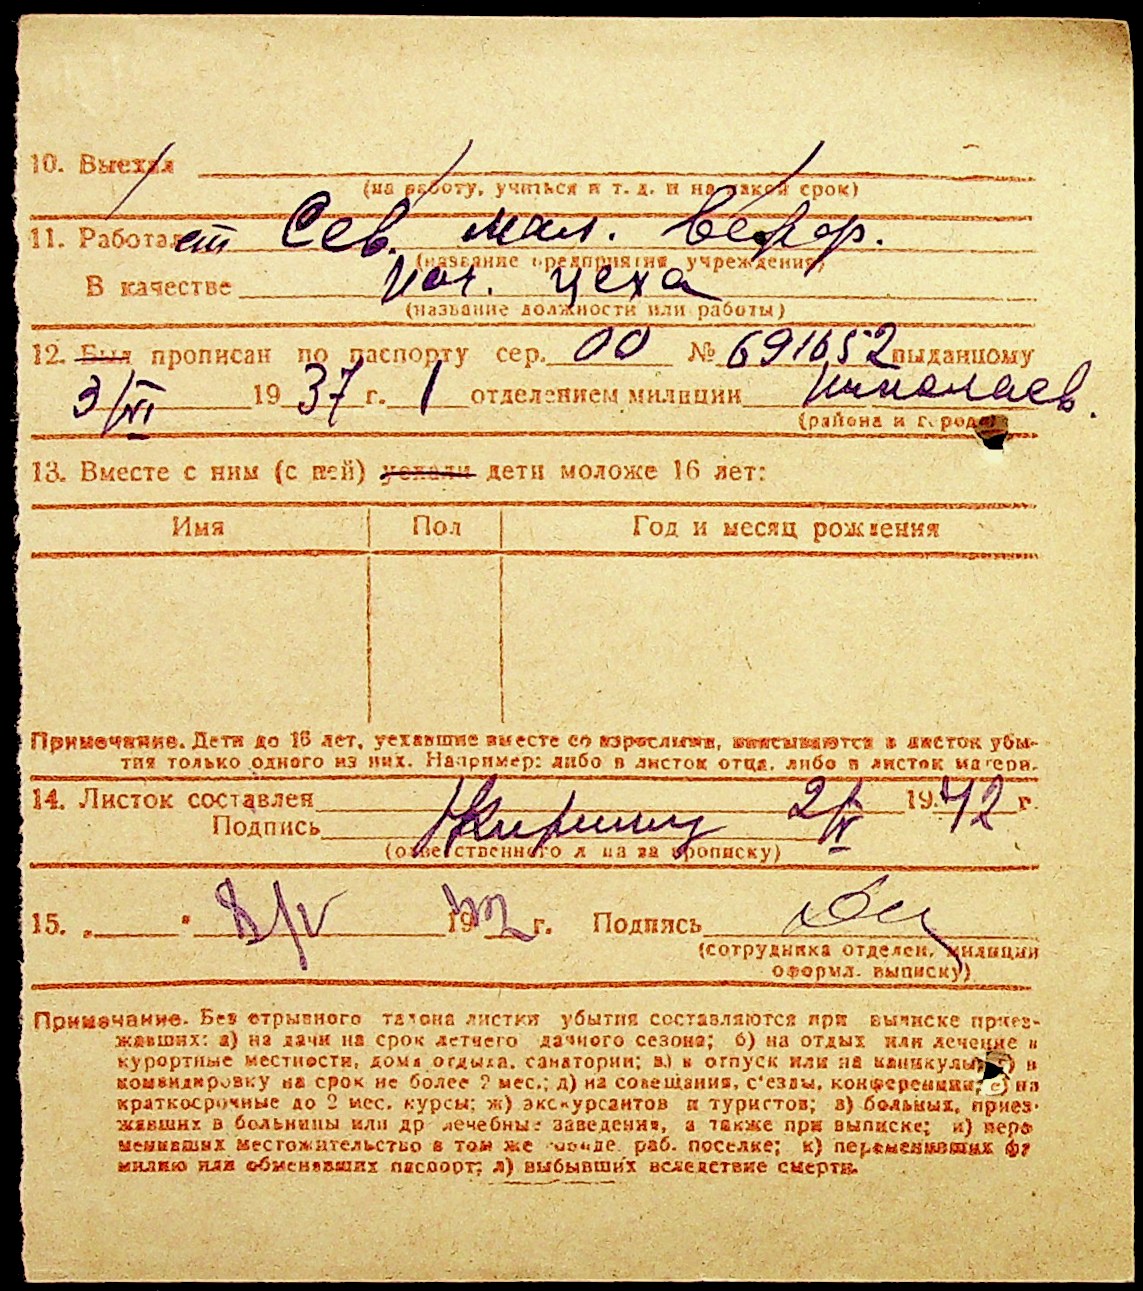 10. Выехал
(на работу, учиться и т. д. и на какой срок)
11. Работает Сев. мал. верф.
(название предприятия учреждения)
В качестве нач. цеха
(название должности или работы)
12. Был прописан по паспорту сер. 00 № 691652 выданному
3/VI 1937 г. 1 отделением милиции Николаев.
(района и города)
13. Вместе с ним (с ней) уехали дети моложе 16 лет:
Имя Пол Год и месяц рождения
Примечание. Дети до 16 лет, уехавшие вместе со взрослыми, вписываются в листок убы-
тия только одного из них. Например: либо в листок отца, либо в листок матери.
14. Листок составлен 2/IV 1942 г.
Подпись
(ответственного лица за прописку)
15. „ " 8/V 1942 г. Подпись
(сотрудника отделен. милиции
оформл. выписку)
Примечание. Без отрывного талона листки убытия составляются при выписке приез-
жавших: а) на дачи на срок летнего дачного сезона; б) на отдых или лечение в
курортные местности, дома отдыха, санатории; в) в отпуск или на каникулы; г) в
командировку на срок не более 2 мес.; д) на совещания, с'езды, конференции; е) на
краткосрочные до 2 мес. курсы; ж) экскурсантов и туристов; з) больных, приез-
жавших в больницы или др лечебные заведения, а также при выписке; и) пере
менивших местожительство в том же городе, раб. поселке; к) переменивших фа
милию или обменявших паспорт; л) выбывших вследствие смерти.